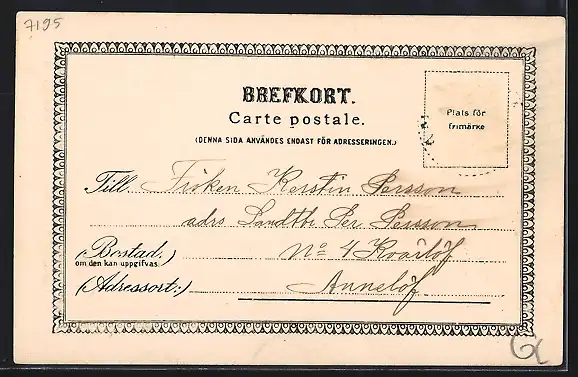 7195
BREFKORT.
Carte postale.
(DENNA SIDA ANVÄNDES ENDAST FÖR ADRESSERINGEN.)
Plats för
frimärke
Till Fröken Kerstin Persson
adrs Landtbr Per Persson
(Bostad.) No 4 Kvärlöf
om den kan uppgifvas.
(Adressort:) Annelöf